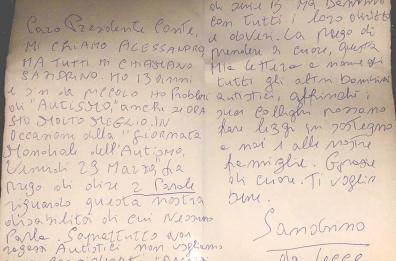 Caro Presidente Conte,
MI CHIAMO ALESSANDRO,
MA TUTTI MI CHIAMANO
SANDRINO. HO 13 anni
e sin da piccolo ho problemi
di "AUTISMO", anche se ORA
STO MOLTO MEGLIO. IN
Occasione della "Giornata
Mondiale dell'Autismo,
Venerdì 29 Marzo", la
prego di dire 2 Parole
riguardo questa nostra
disabilità di cui Nessuno
Parla. Soprattutto noi
ragazzi Autistici non vogliamo
di serie B MA Bambini
con tutti i loro diritti
e doveri. La prego di
prendere a cuore, questa
Mia lettera a nome di
tutti gli altri bambini
autistici, affinché i
suoi colleghi possano
fare leggi in sostegno
a noi e alle nostre
famiglie. Grazie
di cuore. Ti voglio
bene.
Sandrino
da Lecce